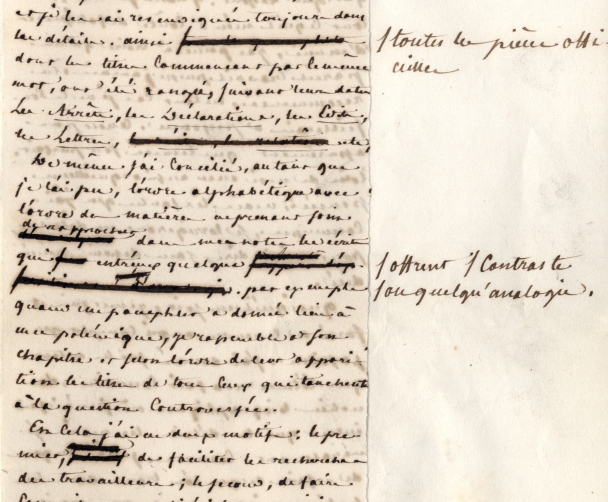 et je les ai res enseignée toujours dans
les détails. ainsi
dont le titre commencent par le même
mot, ont été rangés, suivant leurs dates
Les Arrêts, les Déclarations, les Edits,
les Lettres, etc,
De même j'ai concilié, autant que
je l'ai pu, l'ordre alphabétique avec
l'ordre des matières en prenant soin
de rapprocher dans mes notes les écrits
qui entr'eux quelque
par exemple
quand un pamphlet a donné lieu à
une polémique, je rassemble à son
chapitre et selon l'ordre de leur appari-
tion les titres de tous ceux qui touchent
à la question controversée.
En cela j'ai eu deux motifs : le pre-
mier, de faciliter les recherches
des travailleurs ; le second, de faire
∫ toutes les pièces offi-
cielles
∫ offrent ∫ contraste
∫ ou quelqu'analogie.